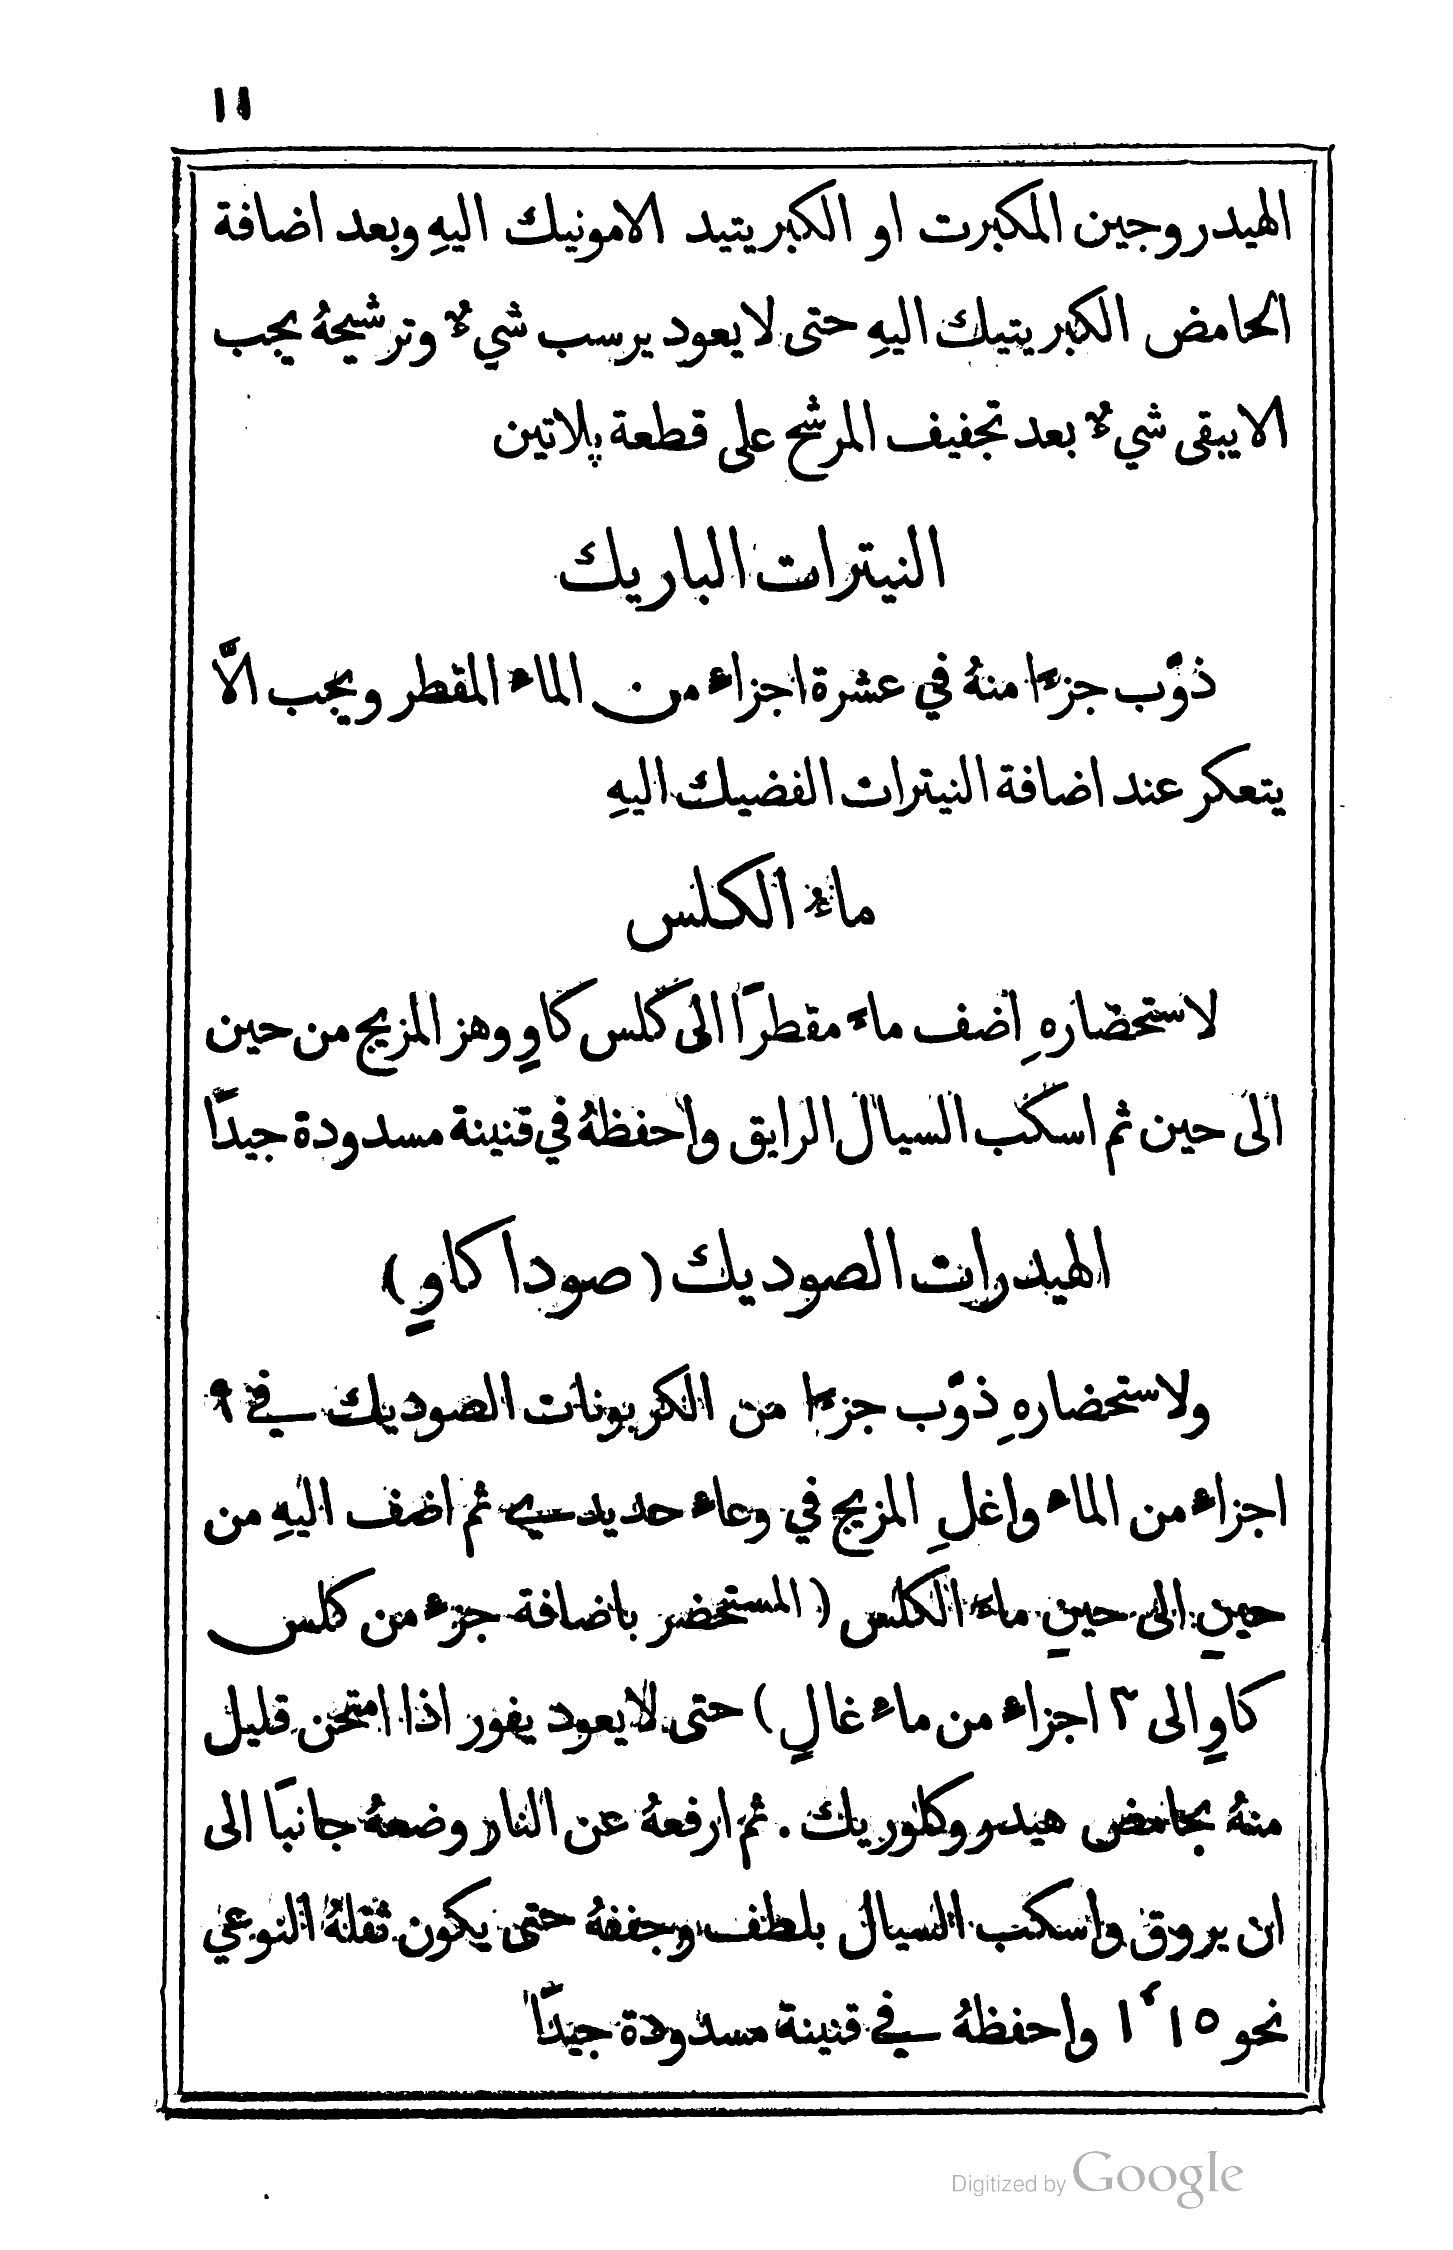 ١١
الهيدروجين المكبرت او الكبريتيد الامونيك اليهِ وبعد اضافة
الحامض الكبريتيك اليهِ حتى لا يعود يرسب شيءٌ وترشيحهُ يجب
الا يبقى شيءٌ بعد تجفيف المرشح على قطعة پلاتين
النيترات الباريك
ذوّب جزءًا منهُ في عشرة اجزاء من الماء المقطر ويجب الَّا
يتعكر عند اضافة النيترات الفضيك اليهِ
ماءُ الكلس
لاستحضارهِ اضف ماءً مقطرًا الى كلس كاوٍ وهز المزيج من حين
الى حين ثم اسكب السيال الرايق واحفظهُ في قنينة مسدودة جيدًا
الهيدرات الصوديك (صودا كاوٍ)
ولاستحضارهِ ذوّب جزءًا من الكربونات الصوديك في ٩
اجزاء من الماء واغلِ المزيج في وعاء حديدي ثم اضف اليهِ من
حينٍ الى حينٍ ماءَ الكلس (المستحضر باضافة جزء من كلس
كاوٍ الى ٣ اجزاء من ماء غالٍ) حتى لا يعود يفور اذا امتحن قليل
منهُ بحامض هيدروكلوريك . ثم ارفعهُ عن النار وضعهُ جانبًا الى
ان يروق واسكب السيال بلطف وجففهُ حتى يكون ثقلهُ النوعي
نحو ١٬١٥ واحفظهُ في قنينة مسدودة جيدًا
Digitized by Google